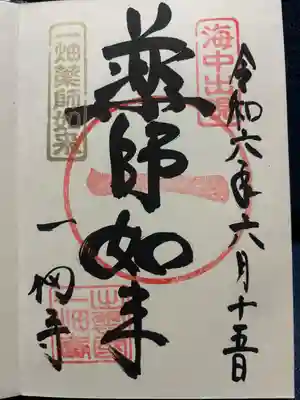 令和六年六月十五日
海中出現
薬師如来
一
一畑薬師如来
一畑寺